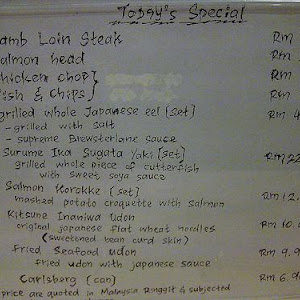 Today's Special
amb Loin Steak Rm
almon head Rm
hicken chop Rm
ish & Chips
grilled whole Japanese eel [set] Rm 4
- grilled with salt
- supreme Brewsterlane sauce
Surume Ika Sugata Yaki [set] Rm 22
grilled whole piece of cutterfish
with sweet soya sauce
Salmon Korokke [set] Rm 12.
mashed potato croquette with salmon
Kitsune Inaniwa udon Rm 10.
original japanese flat wheat noodles
(sweetened bean curd skin)
Fried Seafood udon Rm 9.9
fried udon with japanese sauce
Carlsberg [can] Rm 6.9
price are quoted in Malaysia Ringgit & subjected